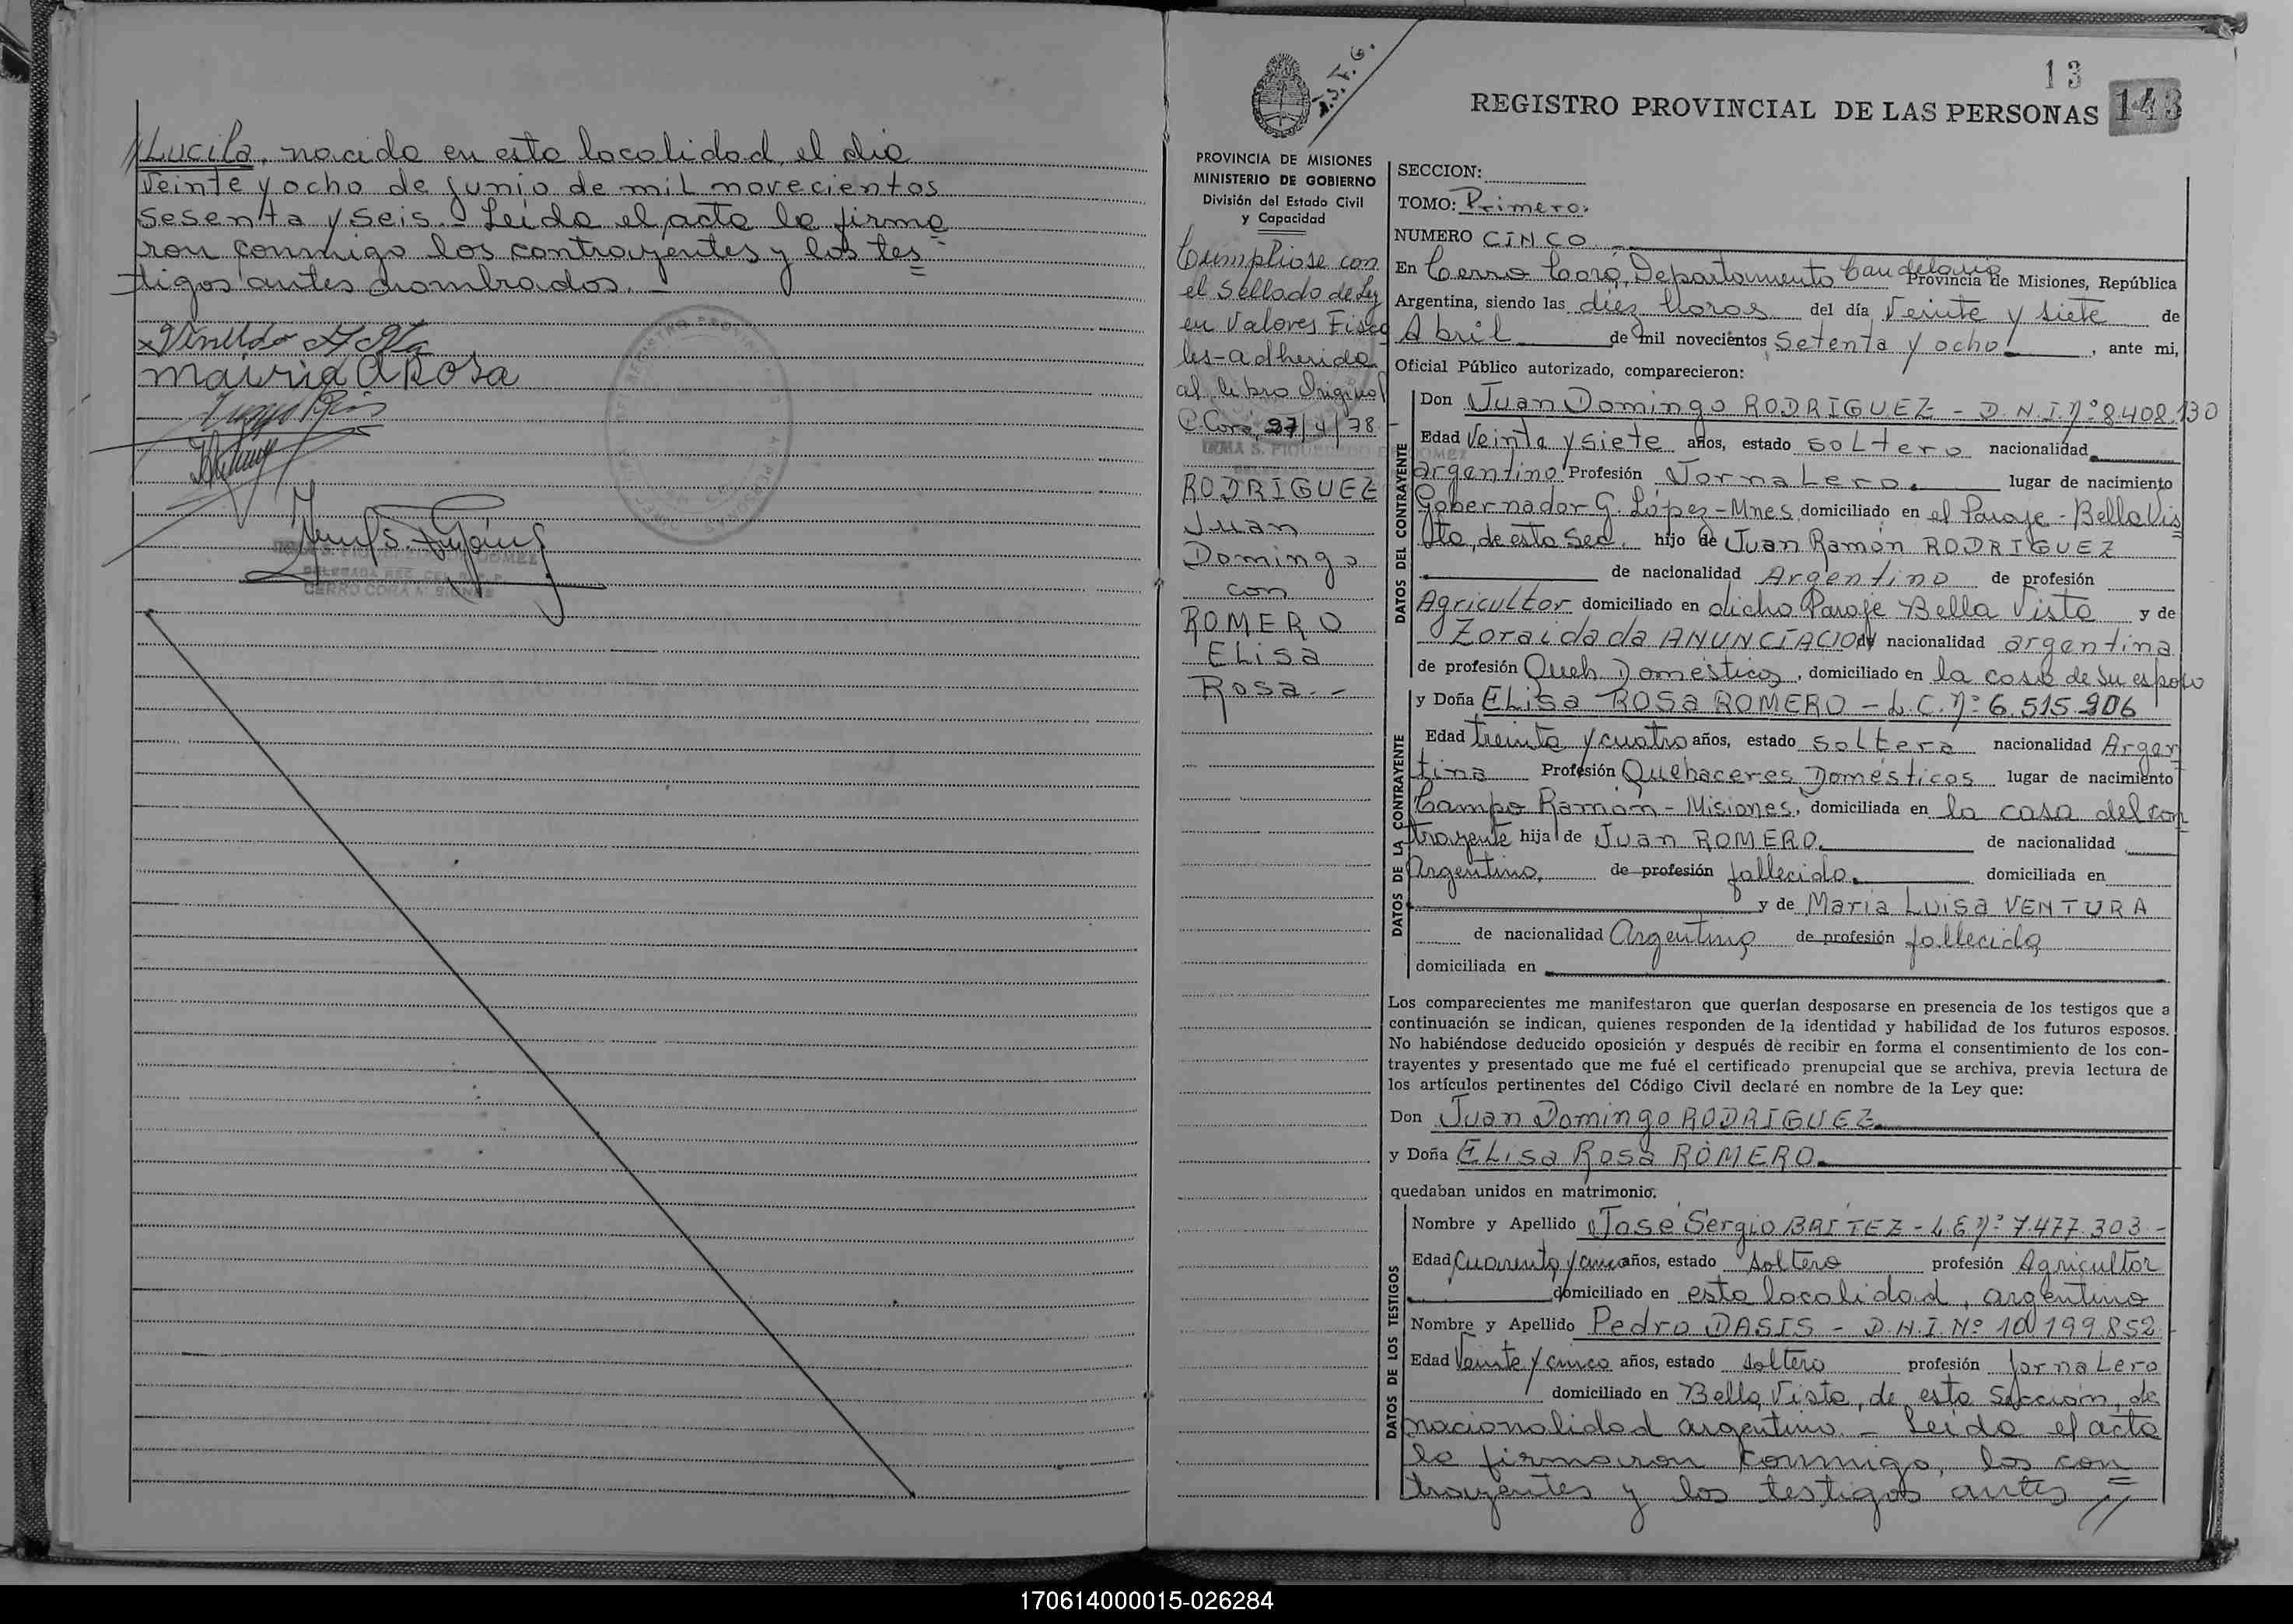 //Lucila, nacida en esta localidad, el día
Veinte y ocho de junio de mil novecientos
Sesenta y seis.- Leída el acta la firma
ron conmigo los contrayentes y los tes
tigos antes nombrados.-
mairia a Rosa
13
REGISTRO PROVINCIAL DE LAS PERSONAS 143
PROVINCIA DE MISIONES
MINISTERIO DE GOBIERNO
División del Estado Civil
y Capacidad
Cumpliose con
el Sellado de Ley
en Valores Fisca
les-adherida
al libro Original
C. Corá, 27/4/78-
RODRIGUEZ
Juan
Domingo
con
ROMERO
Elisa
Rosa.-
SECCION:
TOMO: Primero.
NUMERO CINCO.-
En Cerro Corá, Departamento Candelaria Provincia de Misiones, República
Argentina, siendo las diez horas del día Veinte y siete de
Abril de mil novecientos Setenta y ocho, ante mi,
Oficial Público autorizado, comparecieron:
DATOS DEL CONTRAYENTE
Don Juan Domingo RODRIGUEZ - D.N.I. Nº 8.408.130
Edad Veinte y siete años, estado soltero nacionalidad
argentino Profesión Jornalero. lugar de nacimiento
Gobernador G. López-Mnes. domiciliado en el Paraje-Bella Vis
ta, de esta Sec. hijo de Juan Ramón RODRIGUEZ
de nacionalidad Argentino de profesión
Agricultor domiciliado en dicho Paraje Bella Vista y de
Zoraida da ANUNCIACIO de nacionalidad argentina
de profesión Queh. Domésticos, domiciliado en la casa de su esposo
DATOS DE LA CONTRAYENTE
y Doña Elisa Rosa ROMERO - L.C. Nº 6.515.906
Edad treinta y cuatro años, estado soltera nacionalidad Argen
tina Profesión Quehaceres Domésticos lugar de nacimiento
Campo Ramón - Misiones, domiciliada en la casa del con
trayente hija de Juan ROMERO. de nacionalidad
Argentino, de profesión fallecido. domiciliada en
y de María Luisa VENTURA
de nacionalidad Argentina de profesión fallecida
domiciliada en
Los comparecientes me manifestaron que querían desposarse en presencia de los testigos que a
continuación se indican, quienes responden de la identidad y habilidad de los futuros esposos.
No habiéndose deducido oposición y después de recibir en forma el consentimiento de los con-
trayentes y presentado que me fué el certificado prenupcial que se archiva, previa lectura de
los artículos pertinentes del Código Civil declaré en nombre de la Ley que:
Don Juan Domingo RODRIGUEZ.
y Doña Elisa Rosa ROMERO.
quedaban unidos en matrimonio.
DATOS DE LOS TESTIGOS
Nombre y Apellido José Sergio BRITEZ - L.E. Nº 7.477.303.-
Edad Cuarenta y cinco años, estado soltero profesión Agricultor
domiciliado en esta localidad, argentino
Nombre y Apellido Pedro DASIS - D.N.I. Nº 10.199.852.-
Edad Veinte y cinco años, estado soltero profesión Jornalero
domiciliado en Bella Vista, de esta Sección, de
nacionalidad argentino.- Leída el acta
la firmaron conmigo, los con
trayentes y los testigos antes //
170614000015-026284